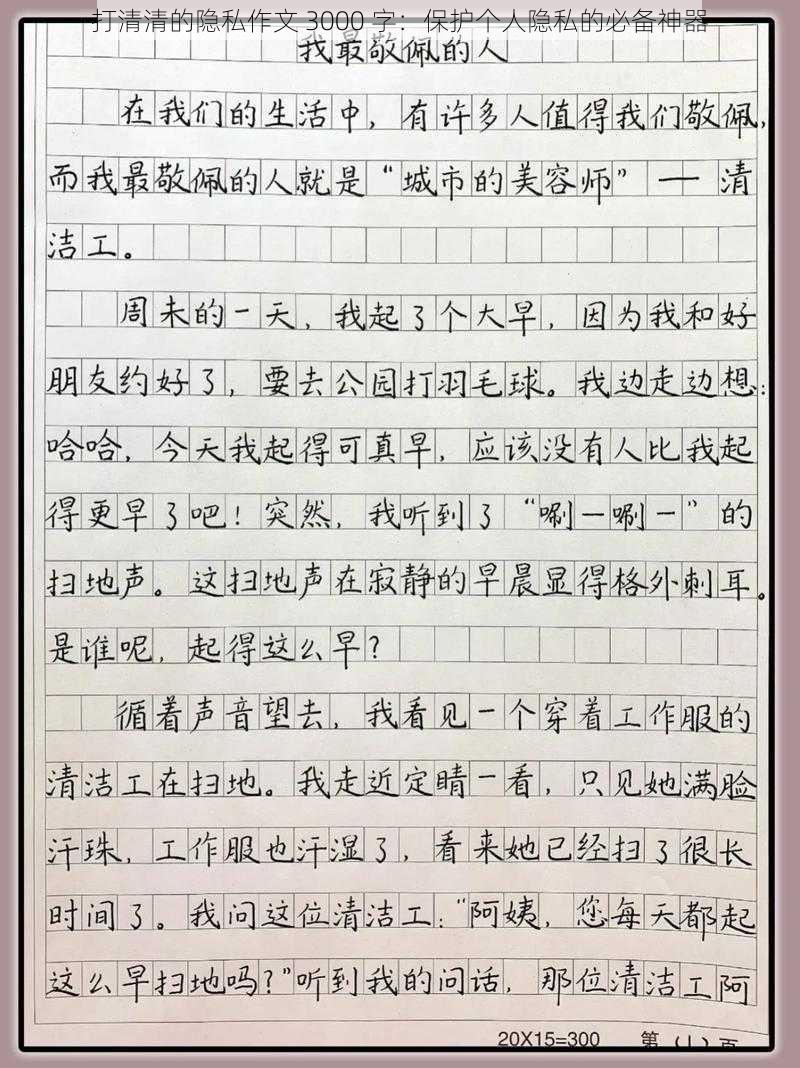 打清清的隐私作文 3000 字：保护个人隐私的必备神器
我最敬佩的人
在我们的生活中，有许多人值得我们敬佩，
而我最敬佩的人就是“城市的美容师”一清
洁工。
周末的一天，我起了个大早，因为我和好
朋友约好了，要去公园打羽毛球。我边走边想：
哈哈，今天我起得可真早，应该没有人比我起
得更早了吧！突然，我听到了“唰一唰一”的
扫地声。这扫地声在寂静的早晨显得格外刺耳。
是谁呢，起得这么早？
循着声音望去，我看见一个穿着工作服的
清洁工在扫地。我走近定睛一看，只见她满脸
汗珠，工作服也汗湿了，看来她已经扫了很长
时间了。我问这位清洁工：“阿姨，您每天都起
这么早扫地吗？”听到我的问话，那位清洁工阿
20X15=300 第(1)页